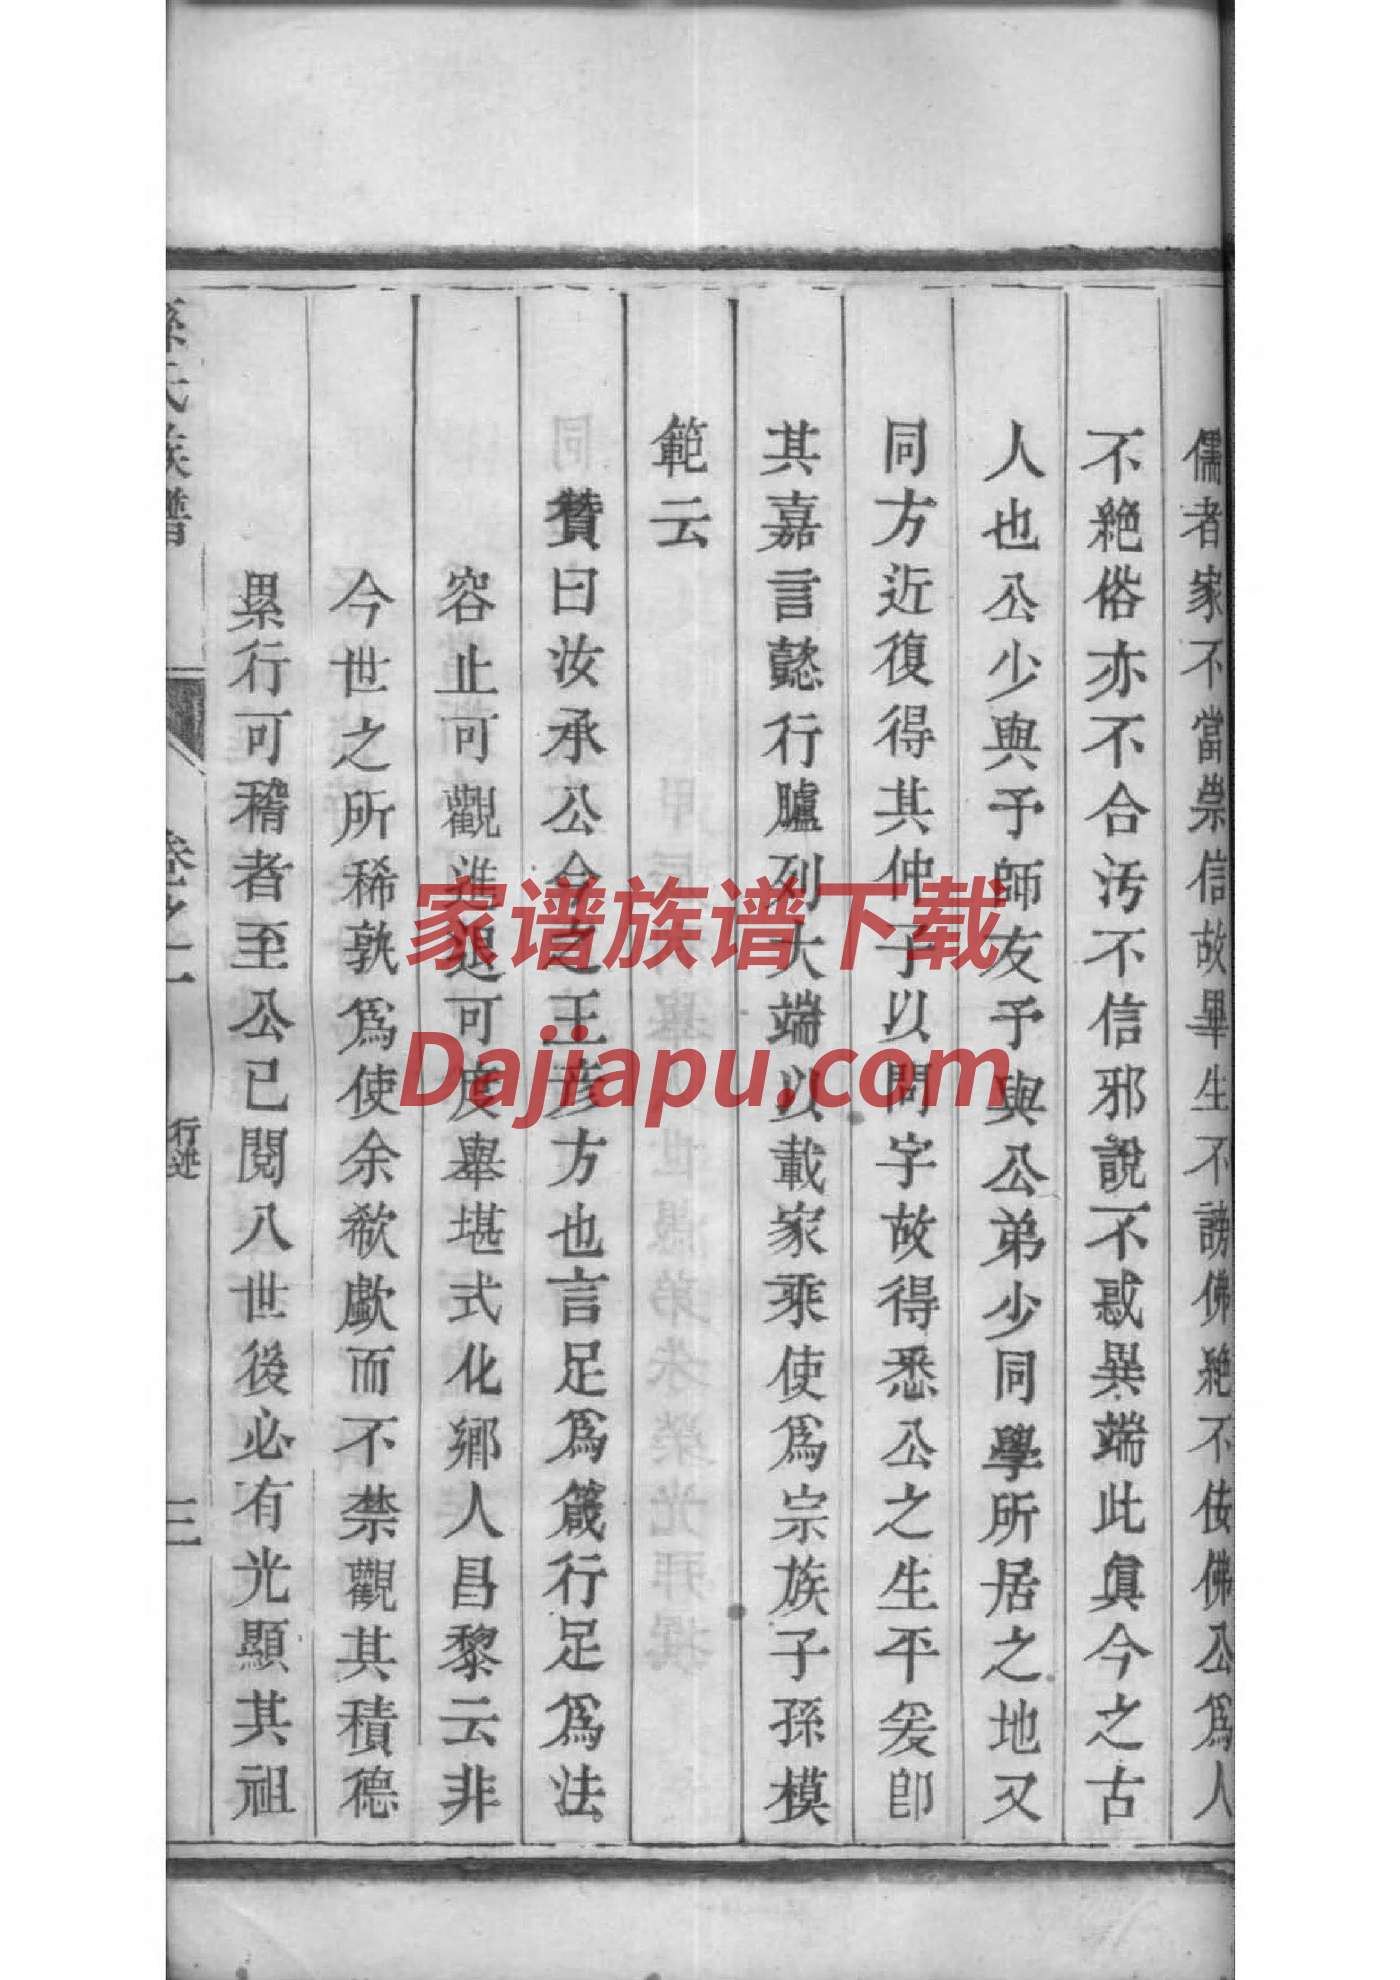 儒者家不當崇信故畢生不謗佛絕不佞佛公爲人
不絕俗亦不合汚不信邪說不惑異端此眞今之古
人也公少與予師友予與公弟少同學所居之地又
同方近復得其仲子以問字故得悉公之生平爰卽
其嘉言懿行臚列大端以載家乘使爲宗族子孫模
範云
贊曰汝承公今之王彥方也言足爲箴行足爲法
容止可觀進退可度舉堪式化鄉人昌黎云非
今世之所稀孰爲使余欷歔而不禁觀其積德
累行可稽者至公已閱八世後必有光顯其祖
孫氏族譜
卷之一
行述
三
家谱族谱下载
Dajiapu.com